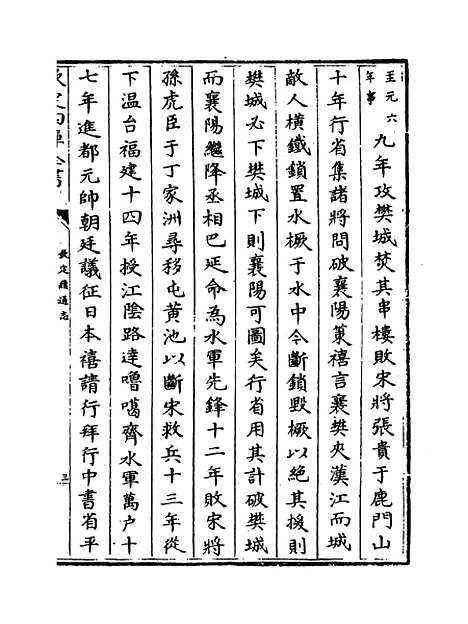 至元六
年事
九年攻樊城焚其串樓敗宋將張貴于鹿門山
十年行省集諸將問破襄陽策禧言襄樊夾漢江而城
敵人橫鐵鎖置水橛于水中今斷鎖毀橛以絶其援則
樊城必下樊城下則襄陽可圖矣行省用其計破樊城
而襄陽繼降丞相巴延命為水軍先鋒十二年敗宋將
孫虎臣于丁家洲尋移屯黄池以斷宋救兵十三年從
下温台福建十四年授江陰路達嚕噶齊水軍萬户十
七年進都元帥朝廷議征日本禧請行拜行中書省平
欽定四庫全書
欽定續通志
三